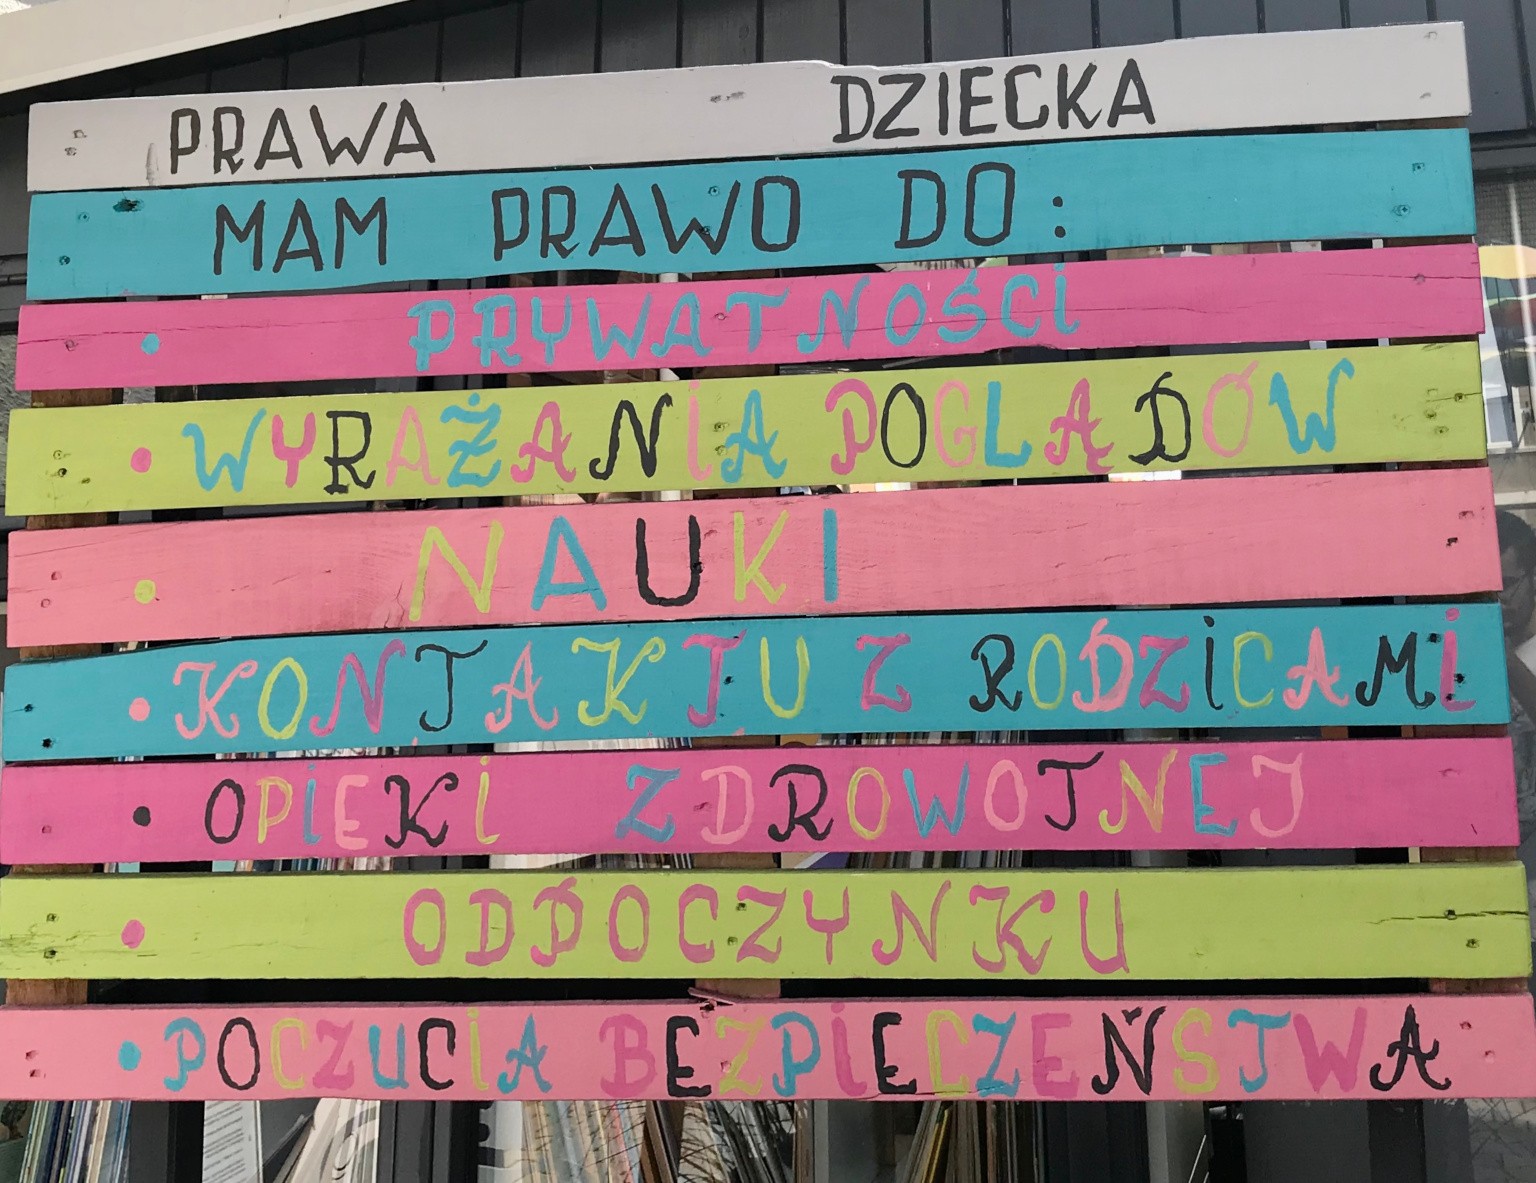 PRAWA DZIECKA
MAM PRAWO DO:
• PRYWATNOŚCI
• WYRAŻANIA POGLĄDÓW
• NAUKI
• KONTAKTU Z RODZICAMI
• OPIEKI ZDROWOTNEJ
• ODPOCZYNKU
• POCZUCIA BEZPIECZEŃSTWA